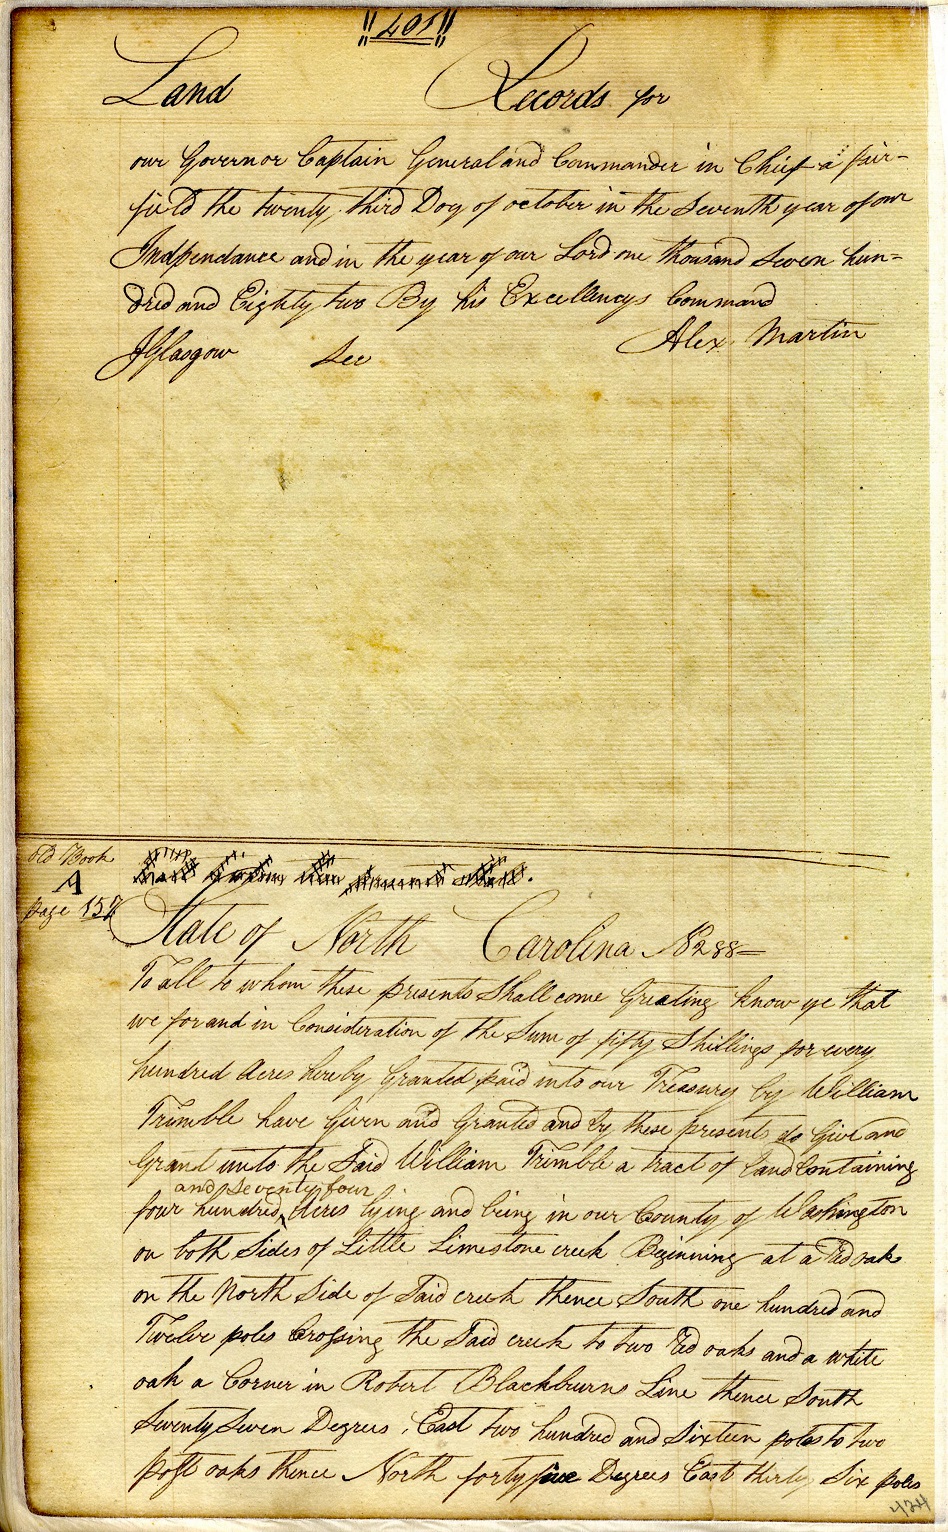 "405"
Land Records for
our Governor Captain General and Commander in Chief a fair=
field the twenty third Day of october in the Seventh year of our
Indpendance and in the year of our Lord one thousand Seven hun=
dred and Eighty two By his Excellencys Command
Alex Martin
JGlasgow Sec
old Book
A
page 157
State of North Carolina No 288=
To all to whom these presents Shall come Greating know ye that
we for and in Consideration of the Sum of fifty Shillings for every
hundred Acres hereby Granted paid into our Treasury by William
Trimble have Given and Granted and by these presents do Give and
Grant unto the Said William Trimble a tract of land Containing
and Seventy four
four hundred Acres lying and being in our County of Washington
on both Sides of Little Limestone creek Beginning at a Red oak
on the North Side of Said creek thence South one hundred and
Twelve poles Crossing the Said creek to two Red oaks and a white
oak a Corner in Robert Blackburns Line thence South
Seventy Seven Degrees East two hundred and Sixteen poles to two
post oaks thence North forty five Degrees East thirty Six poles
424